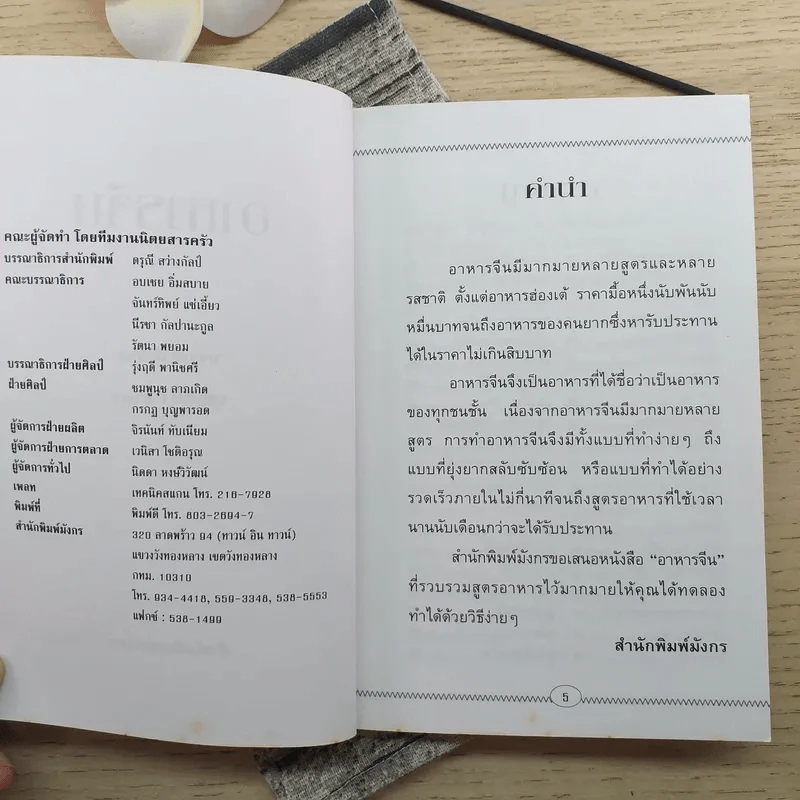 คณะผู้จัดทำ โดยทีมงานนิตยสารครัว
บรรณาธิการสำนักพิมพ์ ดรุณี สว่างกัลป์
คณะบรรณาธิการ อบเชย อิ่มสบาย
จันทร์ทิพย์ แซ่เอี้ยว
นีรชา กัลปานะกูล
รัตนา พยอม
บรรณาธิการฝ่ายศิลป์ รุ่งฤดี พานิชศรี
ฝ่ายศิลป์ ชมพูนุช ลาภเกิด
กรกฎ บุญพารอด
ผู้จัดการฝ่ายผลิต จิรนันท์ ทับเนียม
ผู้จัดการฝ่ายการตลาด เวนิสา โชติอรุณ
ผู้จัดการทั่วไป นิดดา หงษ์วิวัฒน์
เพลท เทคนิคสแกน โทร. 216-7928
พิมพ์ที่ พิมพ์ดี โทร. 803-2694-7
สำนักพิมพ์มังกร 320 ลาดพร้าว 94 (ทาวน์ อิน ทาวน์)
แขวงวังทองหลาง เขตวังทองหลาง
กทม. 10310
โทร. 934-4418, 559-3348, 538-5553
แฟกซ์ : 538-1499
คำนำ
อาหารจีนมีมากมายหลายสูตรและหลาย
รสชาติ ตั้งแต่อาหารฮ่องเต้ ราคามื้อหนึ่งนับพันนับ
หมื่นบาทจนถึงอาหารของคนยากซึ่งหารับประทาน
ได้ในราคาไม่เกินสิบบาท
อาหารจีนจึงเป็นอาหารที่ได้ชื่อว่าเป็นอาหาร
ของทุกชนชั้น เนื่องจากอาหารจีนมีมากมายหลาย
สูตร การทำอาหารจีนจึงมีทั้งแบบที่ทำง่ายๆ ถึง
แบบที่ยุ่งยากสลับซับซ้อน หรือแบบที่ทำได้อย่าง
รวดเร็วภายในไม่กี่นาทีจนถึงสูตรอาหารที่ใช้เวลา
นานนับเดือนกว่าจะได้รับประทาน
สำนักพิมพ์มังกรขอเสนอหนังสือ “อาหารจีน”
ที่รวบรวมสูตรอาหารไว้มากมายให้คุณได้ทดลอง
ทำได้ด้วยวิธีง่ายๆ
สำนักพิมพ์มังกร
5